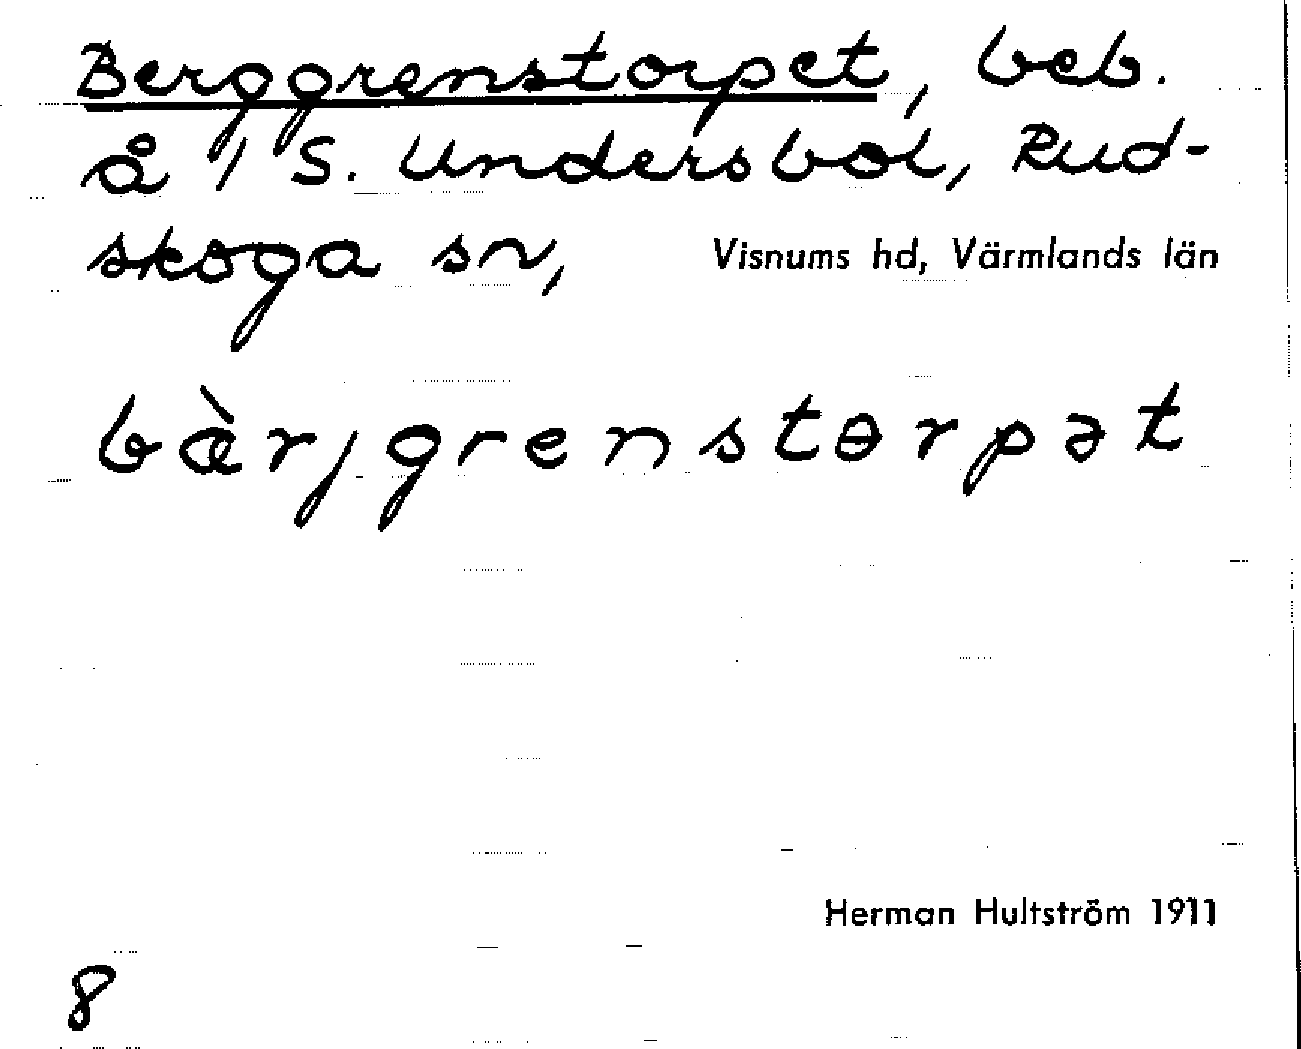 Berggrenstorpet, beb.
å 1/ S. Undersbol, Rud-
skoga sn, Visnums hd, Värmlands län
bæ̀rjgrenstɵrpət
Herman Hultström 1911
8